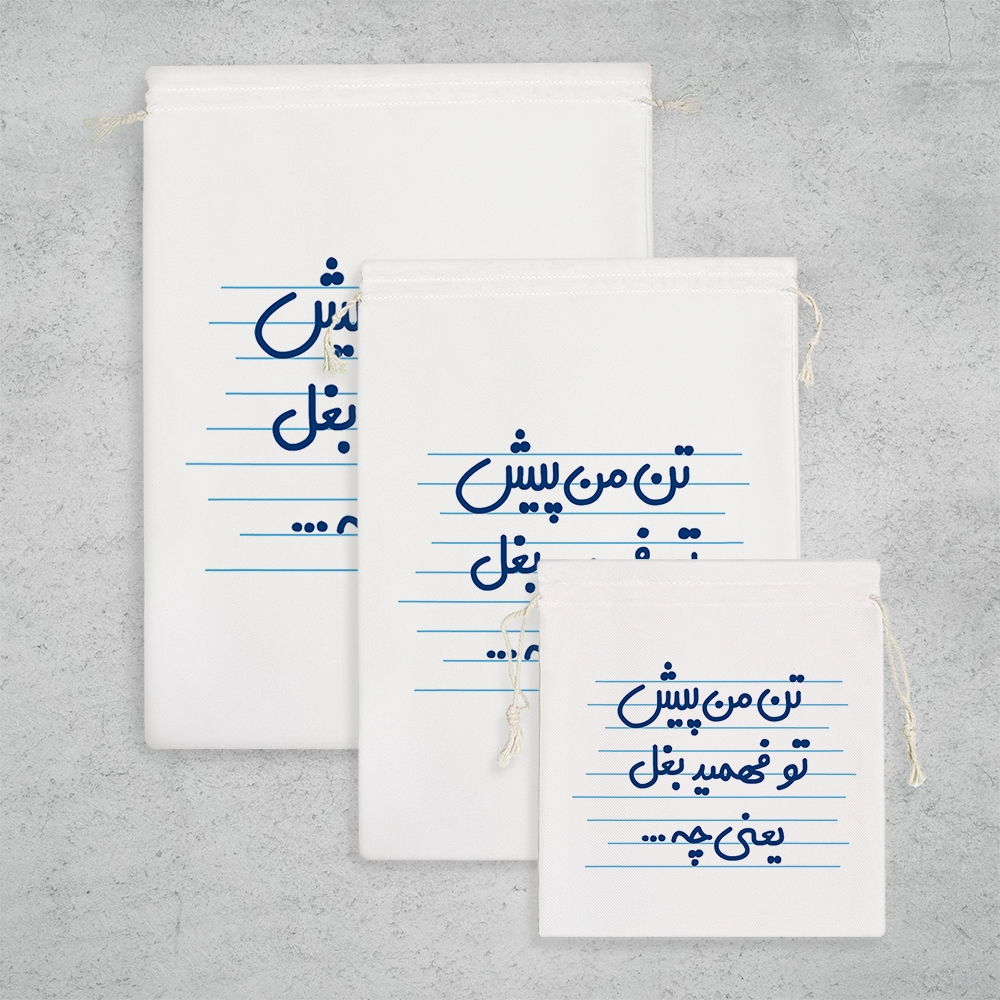 یش
بغل
ه ...
تن من پیش
بغل
ه ...
تن من پیش
تو فهمید بغل
یعنی چه ...